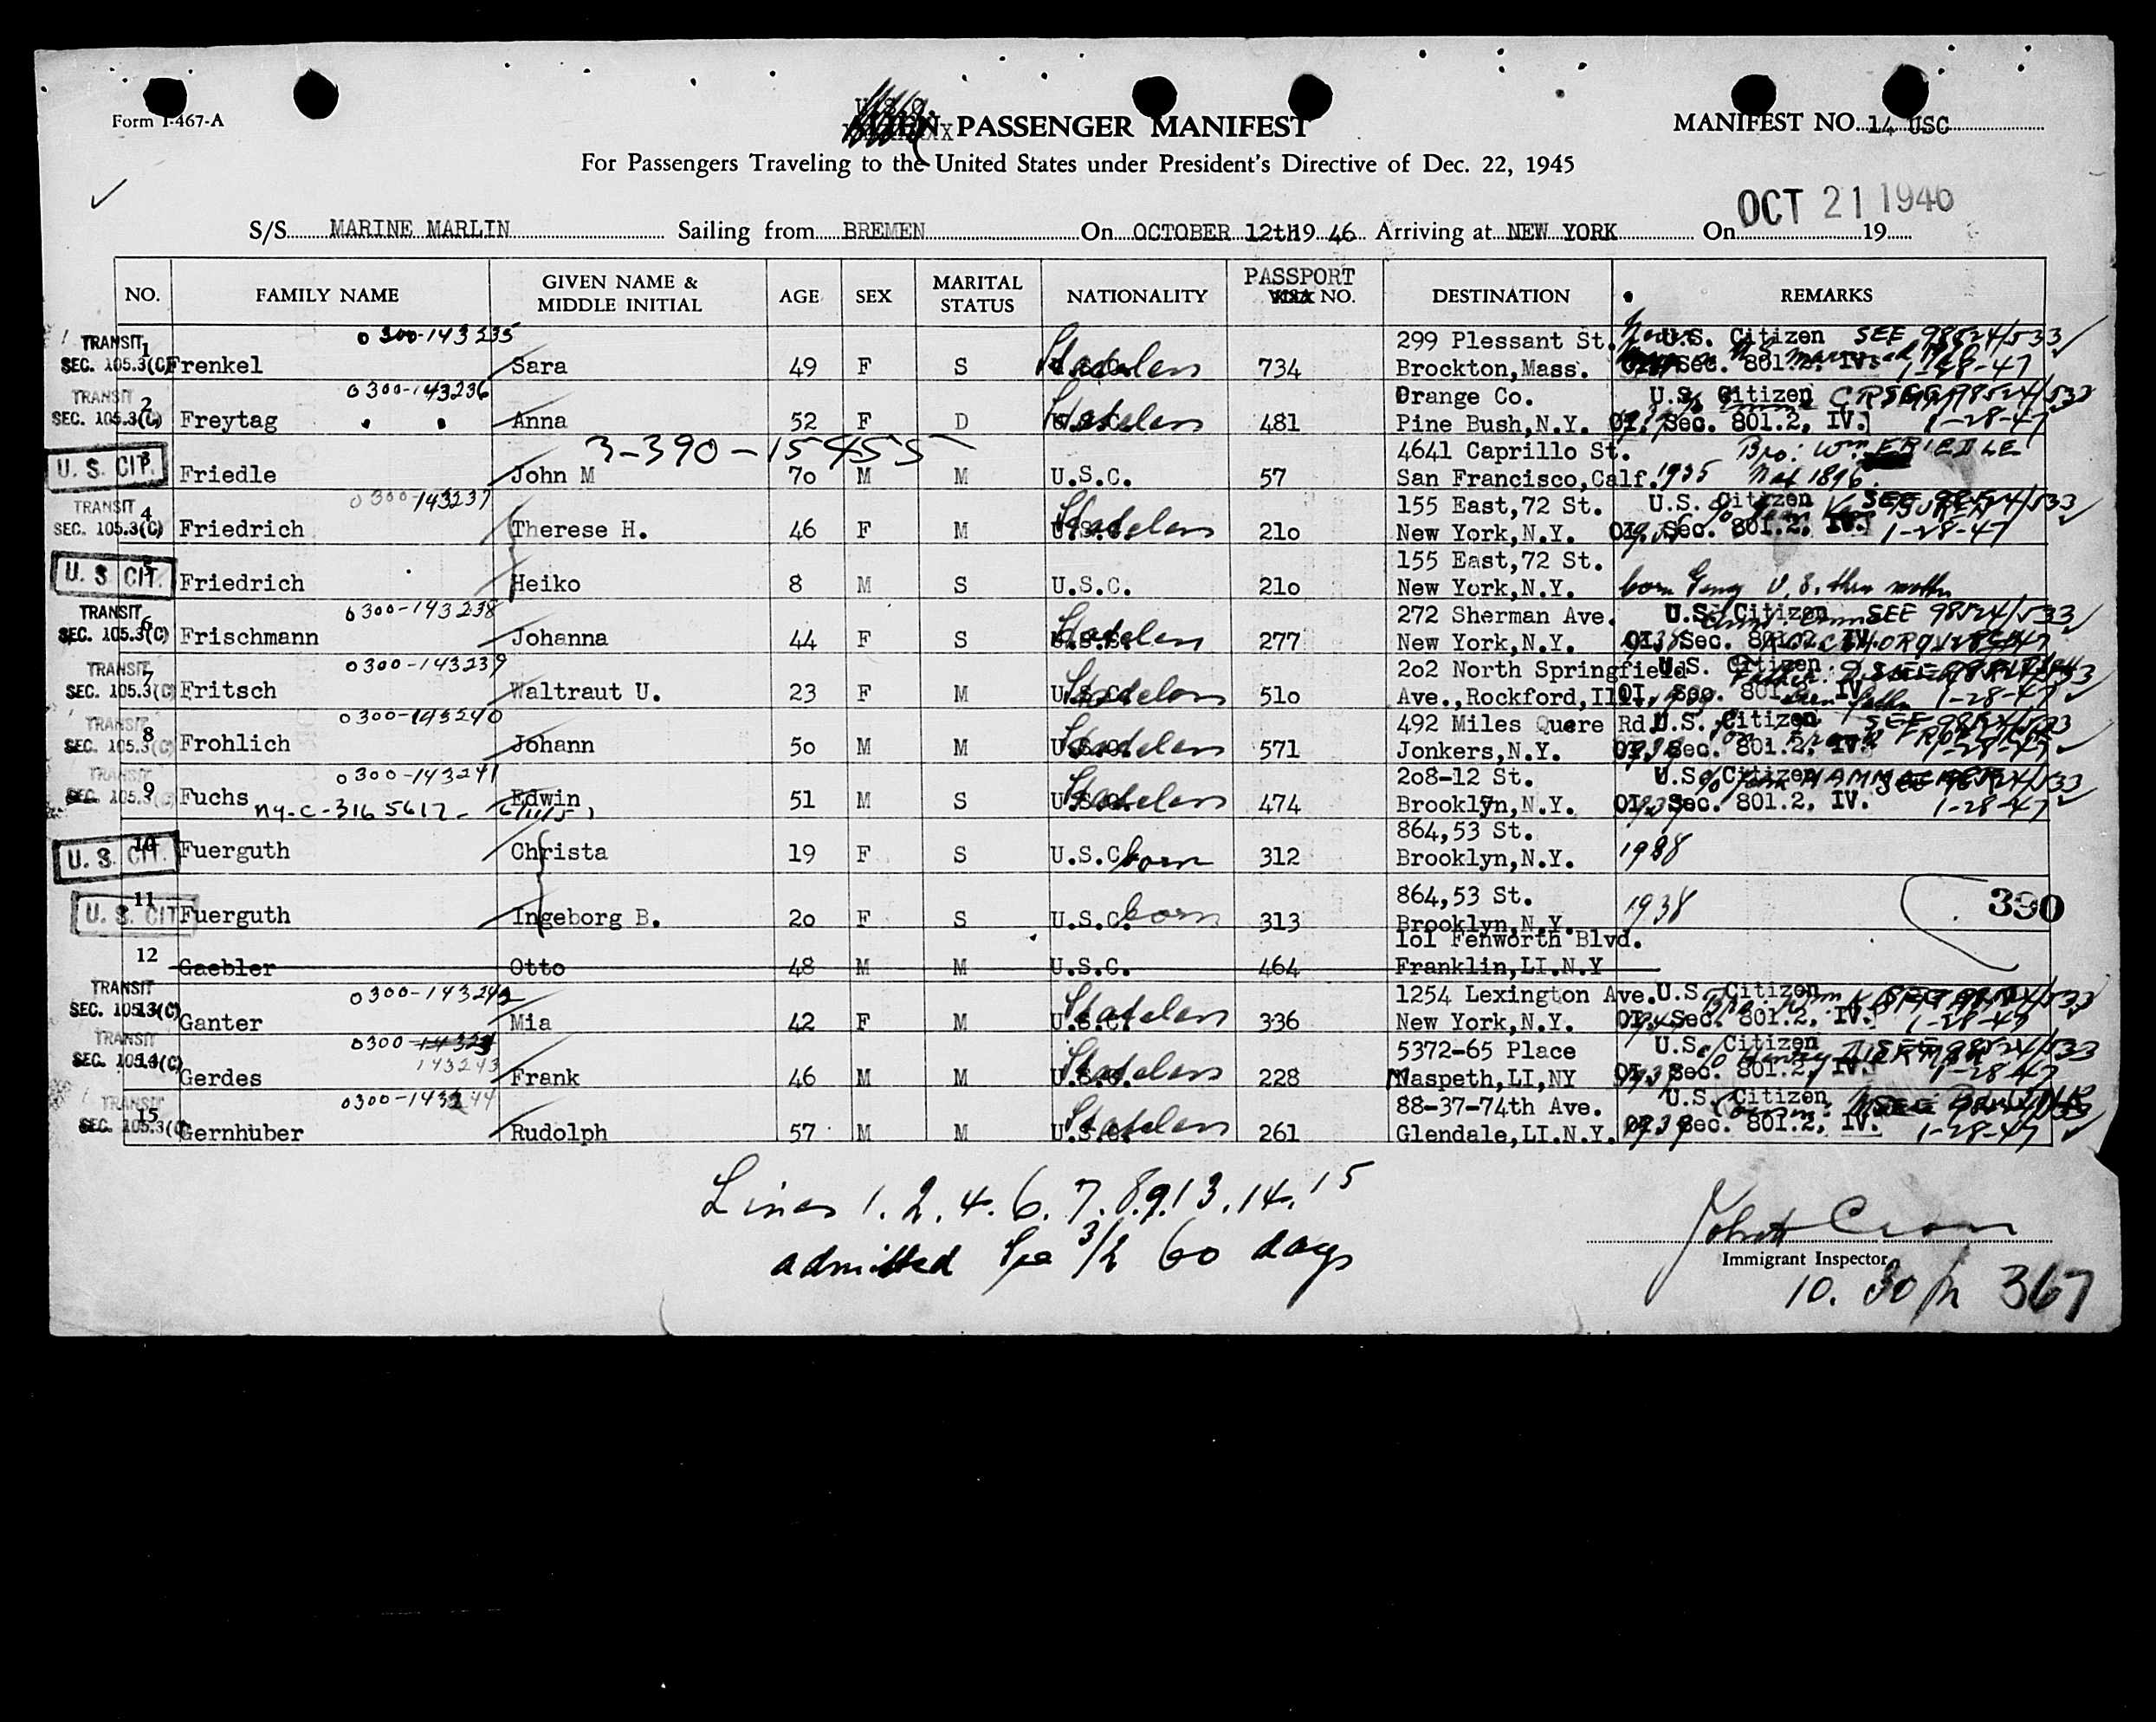 Form I-467-A
U.S.C.
PASSENGER MANIFEST
MANIFEST NO. 14 USC
For Passengers Traveling to the United States under President's Directive of Dec. 22, 1945
OCT 21 1946
S/S MARINE MARLIN Sailing from BREMEN On OCTOBER 12th 19 46 Arriving at NEW YORK On 19
NO. FAMILY NAME GIVEN NAME & MIDDLE INITIAL AGE SEX MARITAL STATUS NATIONALITY PASSPORT NO. DESTINATION REMARKS
TRANSIT 0300-143235 299 Plessant St. U.S. Citizen SEE 98524/533
SEC. 105.3(C) 1 Frenkel Sara 49 F S Stateless 734 Brockton,Mass. Sec. 801.2. IV. 1-28-47
TRANSIT 0300-143236 Orange Co. U.S. Citizen 98524/533
SEC. 105.3(C) 2 Freytag Anna 52 F D Stateless 481 Pine Bush,N.Y. OI. Sec. 801.2, IV. 1-28-47
3-390-15455 4641 Caprillo St. Bro: Wm FRIEDLE
U. S. CIT. 3 Friedle John M 70 M M U.S.C. 57 San Francisco,Calf. 1935 Nat 1896
TRANSIT 0300-143237 155 East,72 St. U.S. Citizen SEE 98524/533
SEC. 105.3(C) 4 Friedrich Therese H. 46 F M Stateless 210 New York,N.Y. OI. Sec. 801.2, IV. 1-28-47
155 East,72 St.
U. S. CIT. Friedrich Heiko 8 M S U.S.C. 210 New York,N.Y. born Gmy U.S. thru mother
TRANSIT 0300-143238 272 Sherman Ave. U.S. Citizen SEE 98524/533
SEC. 105.3(C) 6 Frischmann Johanna 44 F S Stateless 277 New York,N.Y. OI. Sec. 801.2, IV.
TRANSIT 0300-143239 202 North Springfield U.S. Citizen
SEC. 105.3(C) 7 Fritsch Waltraut U. 23 F M U.S.C. Stateless 510 Ave.,Rockford,Ill. OI. Sec. 801.2, IV. 1-28-47
TRANSIT 0300-143240 492 Miles Quere Rd. U.S. Citizen SEE 98524/533
SEC. 105.3(C) 8 Frohlich Johann 50 M M U.S.C. Stateless 571 Jonkers,N.Y. OI. Sec. 801.2, IV. 1-28-47
TRANSIT 0300-143241 208-12 St. U.S. Citizen 98524/533
SEC. 105.3(C) 9 Fuchs Edwin 51 M S U.S.C. Stateless 474 Brooklyn,N.Y. OI. Sec. 801.2, IV. 1-28-47
NY-C-3165617
864,53 St.
U. S. CIT. 10 Fuerguth Christa 19 F S U.S.C. born 312 Brooklyn,N.Y. 1938
864,53 St. 390
U. S. CIT 11 Fuerguth Ingeborg B. 20 F S U.S.C. born 313 Brooklyn,N.Y. 1938
101 Fenworth Blvd.
12 Gaebler Otto 48 M M U.S.C. 464 Franklin,LI.N.Y
TRANSIT 0300-143242 1254 Lexington Ave. U.S. Citizen 98524/533
SEC. 105.3(C) 13 Ganter Mia 42 F M U.S.C. Stateless 336 New York,N.Y. OI. Sec. 801.2, IV. 1-28-47
TRANSIT 0300-14324 143243 5372-65 Place U.S. Citizen SEE 98524/533
SEC. 105.3(C) 14 Gerdes Frank 46 M M U.S.C. Stateless 228 Maspeth,LI,NY OI. Sec. 801.2, IV. 1-28-47
TRANSIT 0300-143244 88-37-74th Ave. U.S. Citizen
SEC. 105.3(C) 15 Gernhuber Rudolph 57 M M U.S.C. Stateless 261 Glendale,LI.N.Y. Sec. 801.2, IV. 1-28-47
Lines 1. 2. 4. 6. 7. 8. 9. 13. 14. 15
admitted Sec 3/2 60 days
Immigrant Inspector
10. 30 367